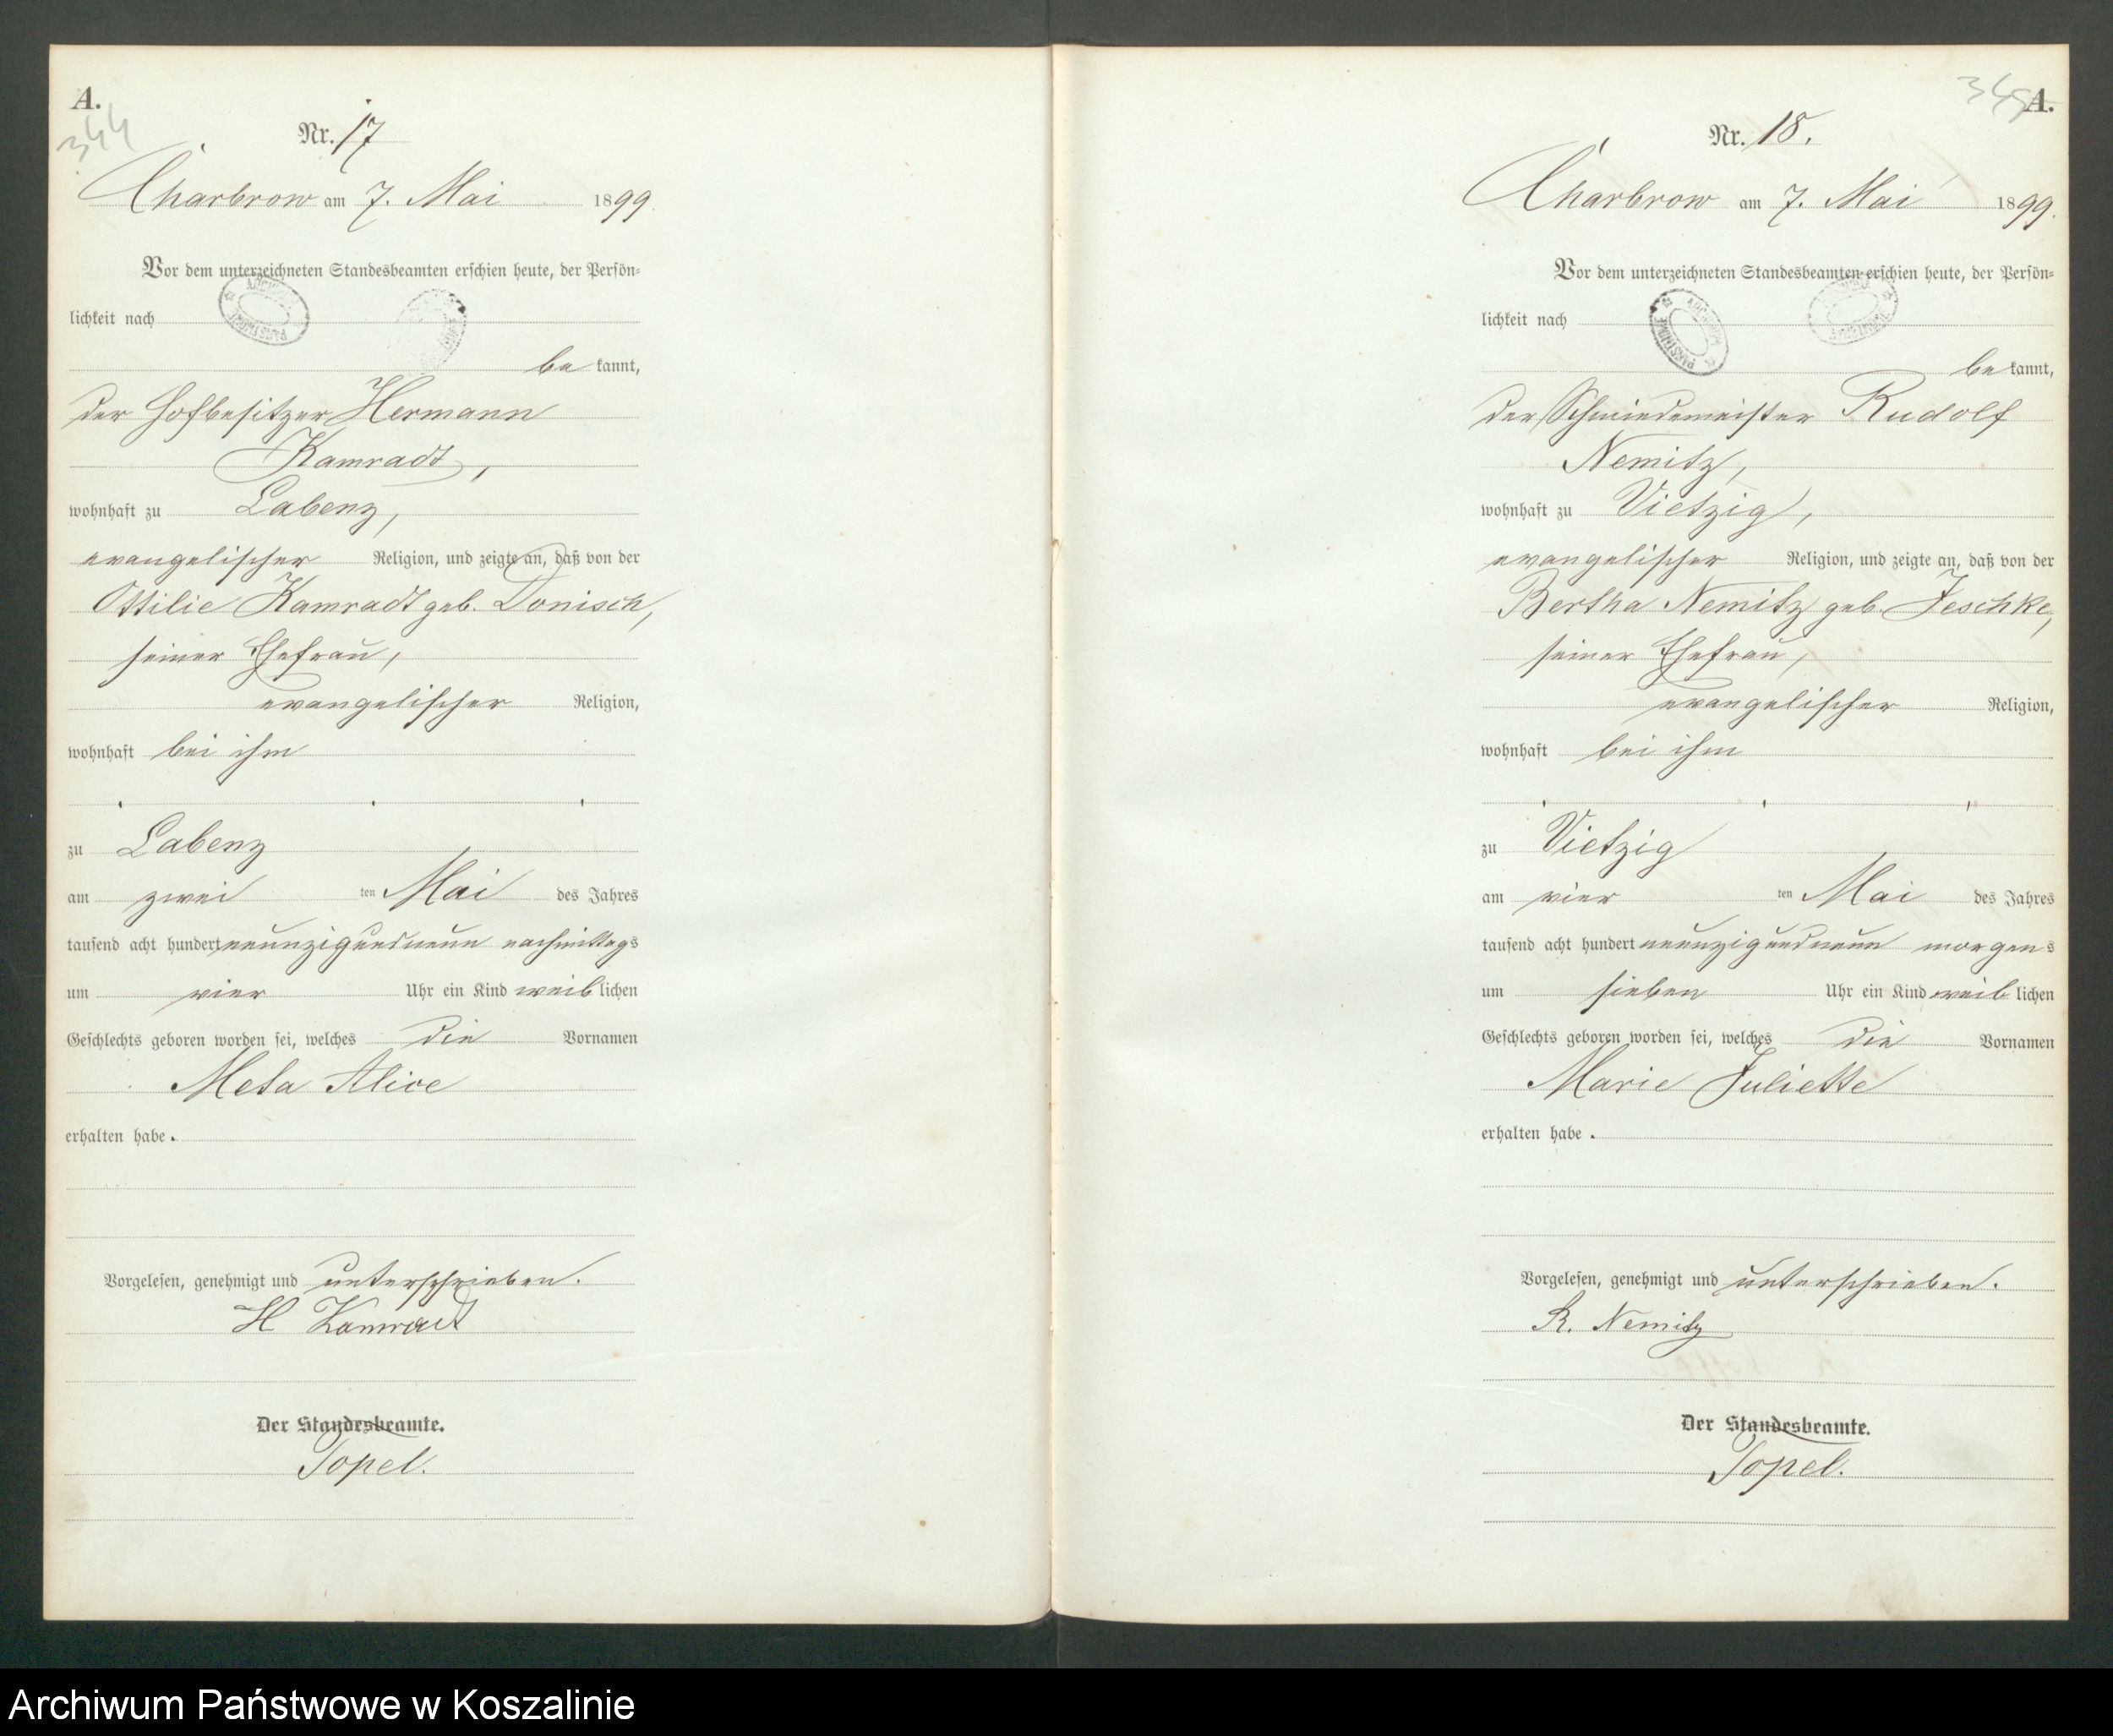 A.
344
Nr. 17
Charbrow am 7. Mai 1899.
Vor dem unterzeichneten Standesbeamten erschien heute, der Persön-
lichkeit nach
be kannt,
der Hofbesitzer Hermann
Kamradt,
wohnhaft zu Labenz,
evangelischer Religion, und zeigte an, daß von der
Ottilie Kamradt geb. Donisch,
seiner Ehefrau,
evangelischer Religion,
wohnhaft bei ihm
zu Labenz
am zwei ten Mai des Jahres
tausend acht hundert neunzigundneun nachmittags
um vier Uhr ein Kind weib lichen
Geschlechts geboren worden sei, welches die Vornamen
Meta Alice
erhalten habe.
Vorgelesen, genehmigt und unterschrieben.
H Kamradt
Der Standesbeamte.
Topel.
345
A.
Nr. 18.
Charbrow am 7. Mai 1899.
Vor dem unterzeichneten Standesbeamten erschien heute, der Persön-
lichkeit nach
be kannt,
der Schmiedemeister Rudolf
Nemitz,
wohnhaft zu Vietzig,
evangelischer Religion, und zeigte an, daß von der
Bertha Nemitz geb. Jeschke,
seiner Ehefrau,
evangelischer Religion,
wohnhaft bei ihm
zu Vietzig
am vier ten Mai des Jahres
tausend acht hundert neunzigundneun morgens
um sieben Uhr ein Kind weib lichen
Geschlechts geboren worden sei, welches die Vornamen
Marie Juliette
erhalten habe.
Vorgelesen, genehmigt und unterschrieben.
R. Nemitz
Der Standesbeamte.
Topel.
Archiwum Państwowe w Koszalinie